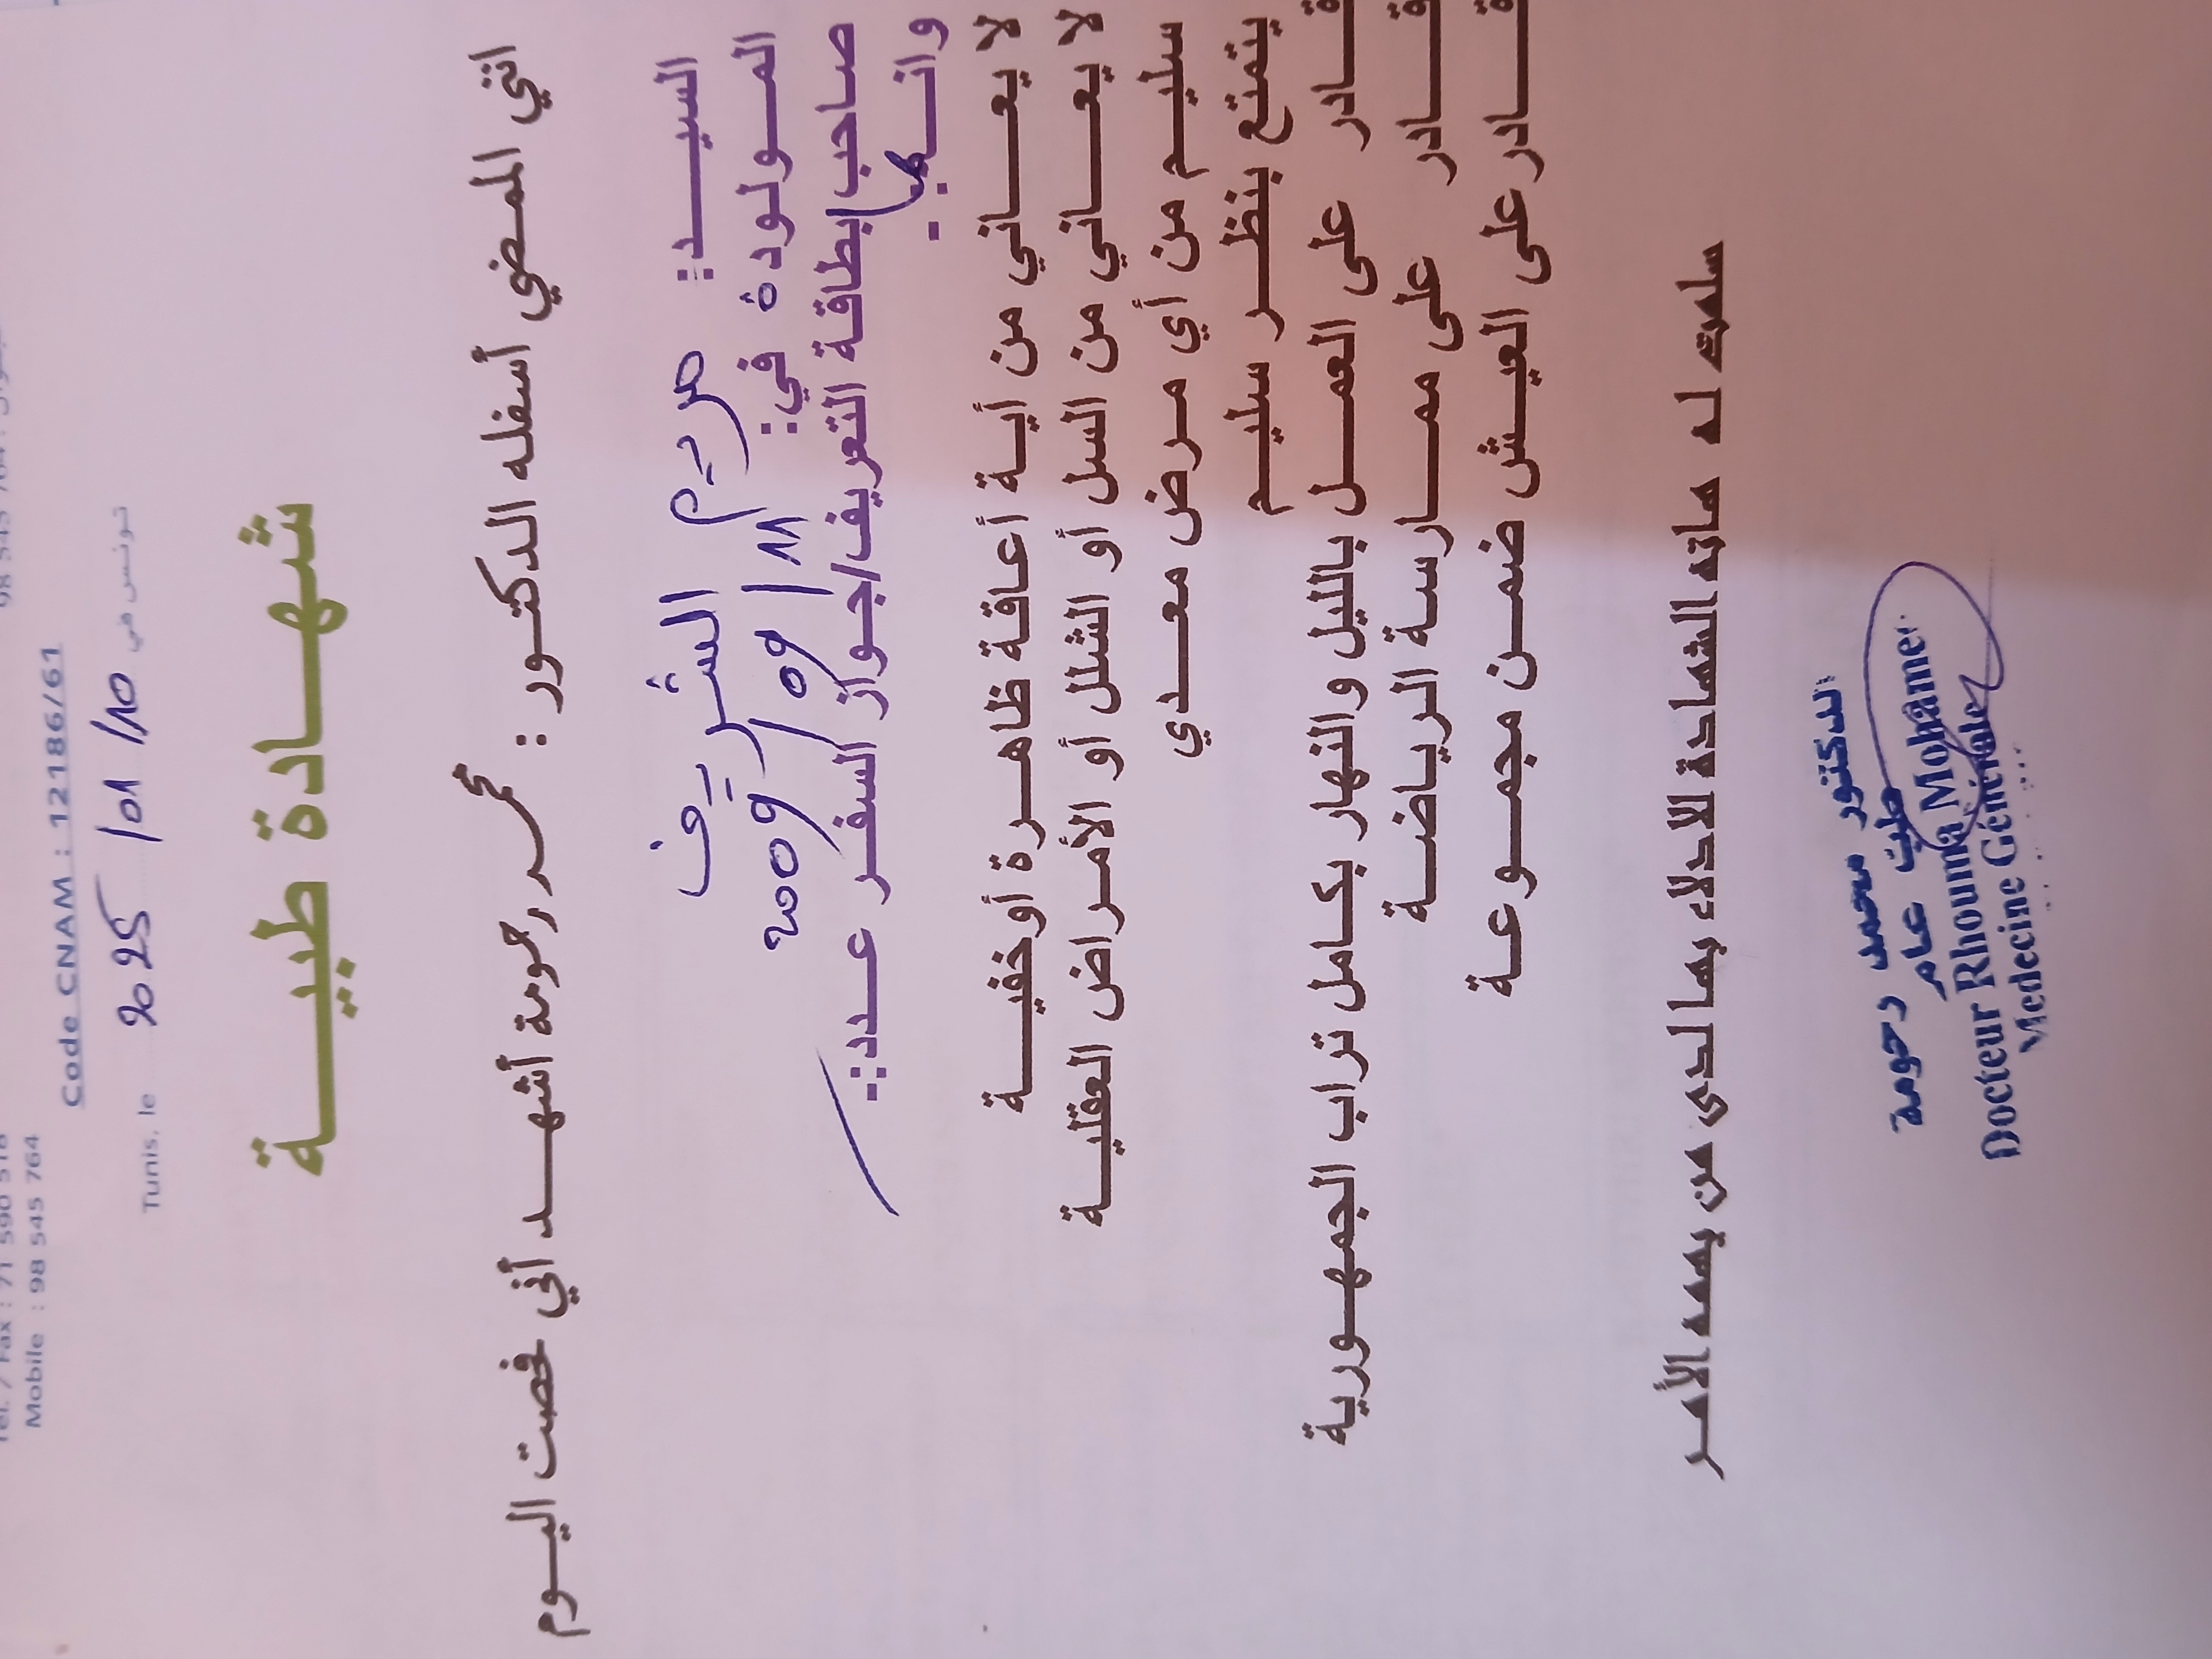 Mobile : 98 545 764
Code CNAM : 12186/61
Tunis, le 2025 /01 /10 تونس في
شهادة طبية
انني الممضي أسفله الدكتور : محمد رحومة أشهد أني فحصت اليوم
السيد: مريم الشريف
المولودة في: 11/ 09/ 2009
صاحب بطاقة التعريف/جواز السفر عدد:
وانها:
لا يعاني من أية أعاقة ظاهرة أوخفية
لا يعاني من السل أو الشلل أو الأمراض العقلية
سليم من أي مرض معدي
يتمتع بنظر سليم
قادر على العمل بالليل والنهار بكامل تراب الجمهورية
قادر على ممارسة الرياضة
قادر على العيش ضمن مجموعة
سلمت له هاته الشهادة للادلاء بها لدى من يهمه الأمر
الدكتور محمد رحومة
طبيب عام
Docteur Rhouma Mohamed
Medecine Générale